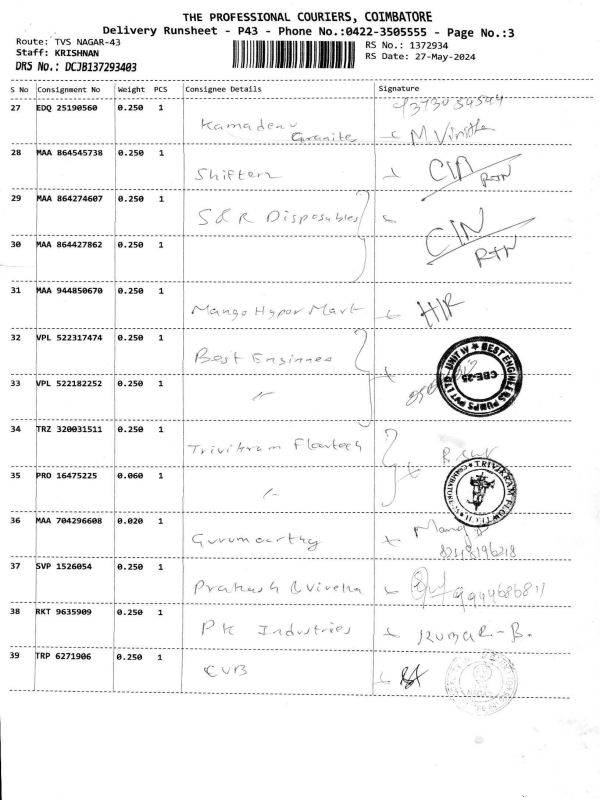 THE PROFESSIONAL COURIERS, COIMBATORE
Delivery Runsheet - P43 - Phone No.:0422-3505555 - Page No.:3
Route: TVS NAGAR-43
RS No.: 1372934
Staff: KRISHNAN
RS Date: 27-May-2024
DRS No.: DCJB137293403
S No Consignment No Weight PCS Consignee Details Signature
27 EDQ 25190560 0.250 1
Kamadenu
Granites
28 MAA 864545738 0.250 1
CIN
RTN
29 MAA 864274607 0.250 1
S&R Disposables
CIN
RTN
30 MAA 864427862 0.250 1
31 MAA 944850670 0.250 1
Mango Hypar Mart
32 VPL 522317474 0.250 1
Best Enginnee
BEST ENGINEERS PUMPS PVT LTD - UNIT IV
CBE-25
33 VPL 522182252 0.250 1
34 TRZ 320031511 0.250 1
Trivikram Flowtech
35 PRO 16475225 0.060 1
TRIVIKRAM FLOWTECH
36 MAA 704296608 0.020 1
Gurumoorthy
37 SVP 1526054 0.250 1
Prakash &
38 RKT 9635909 0.250 1
PK Industries
Kumar-B.
39 TRP 6271906 0.250 1
CUB